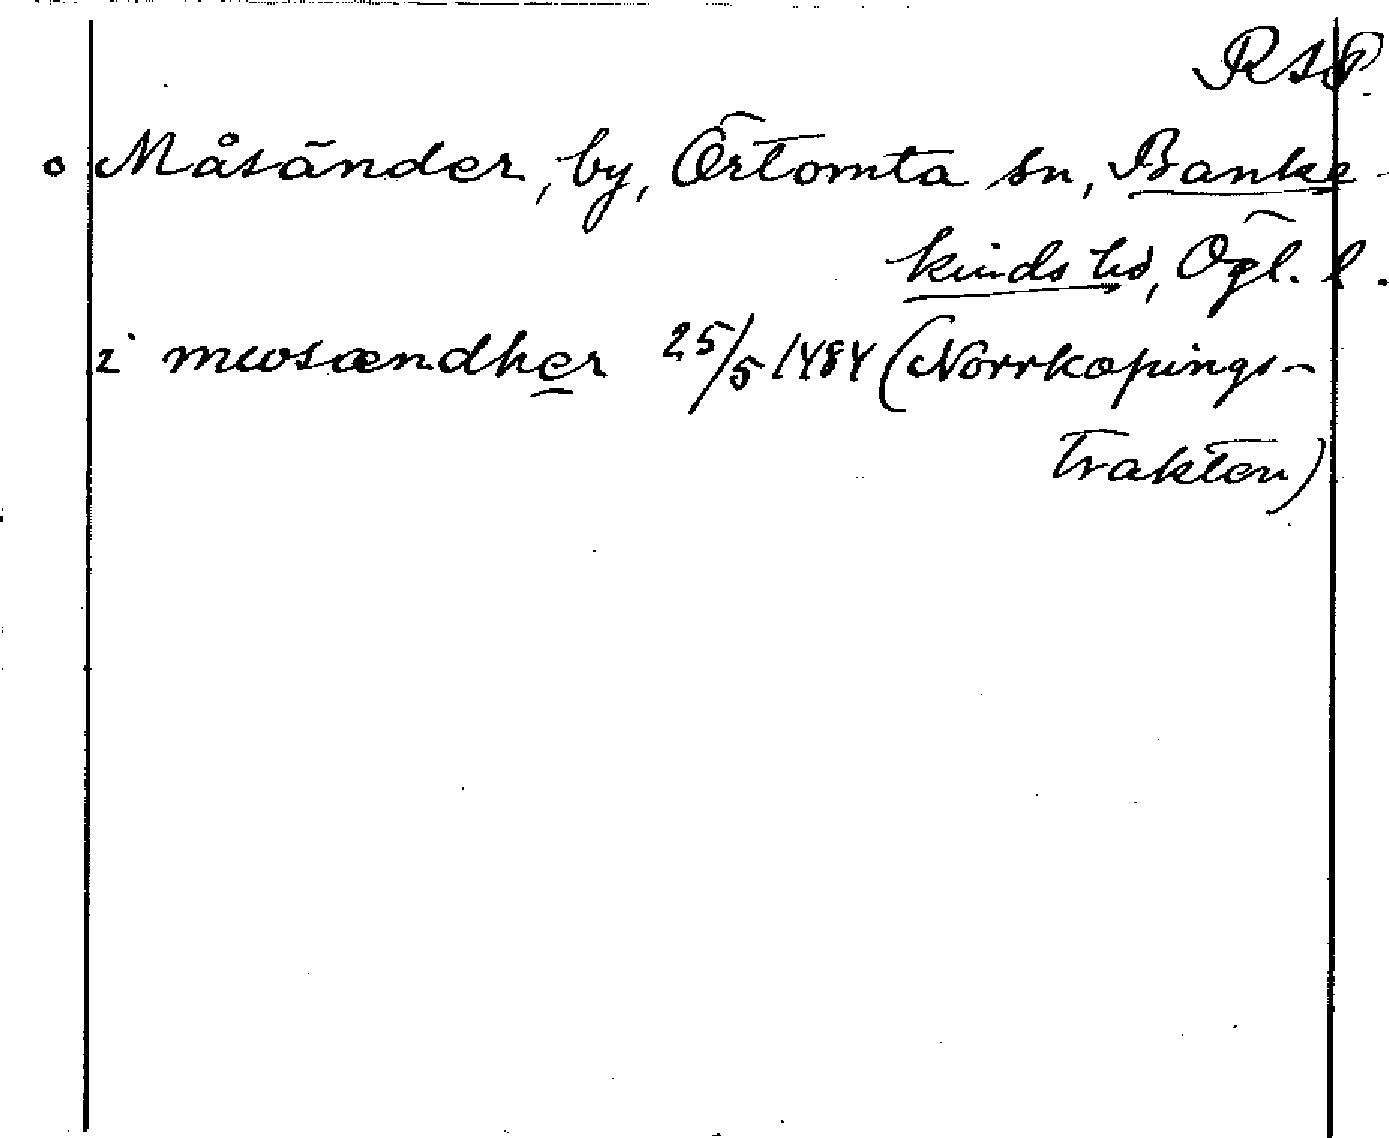 RAP
o Måsänder, by, Örtomta sn, Banke-
kinds hd, Ögl. l.
i mwsændher 25/5 1484 (Norrköpings-
trakten)